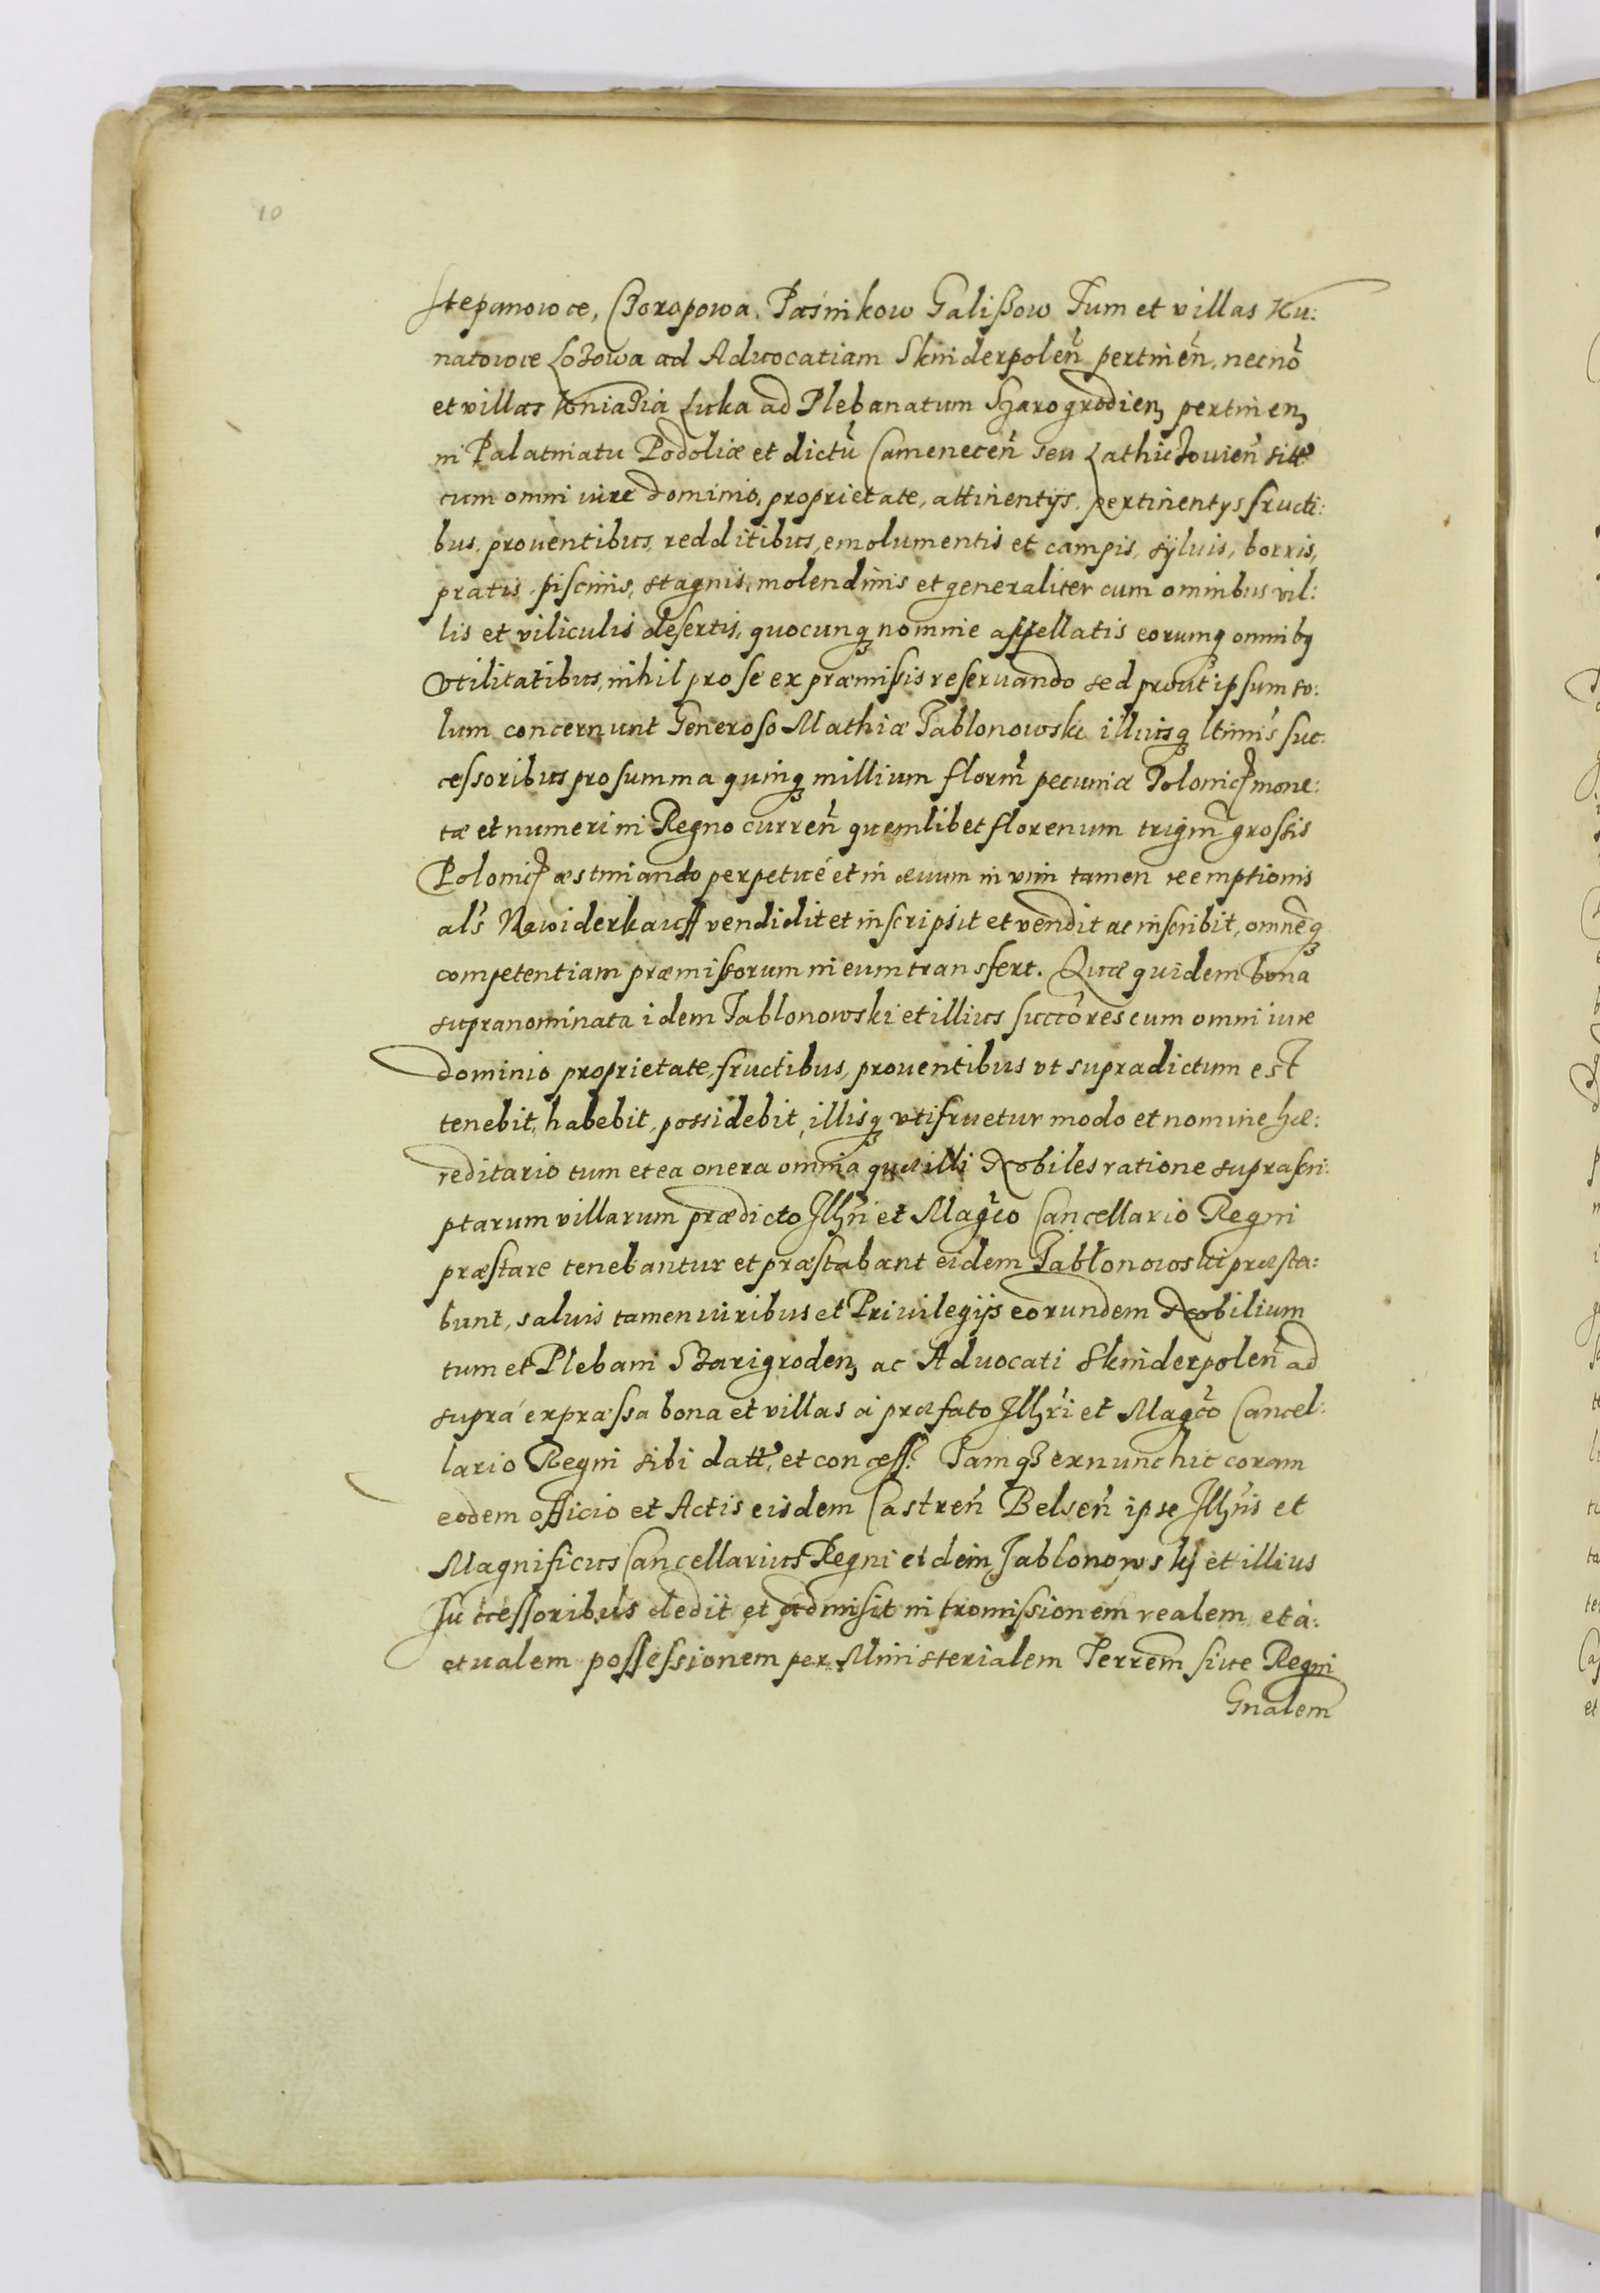 10
Stepanowce, Czorapowa, Paśnikow Galißow Tum et villas Ku:
natowce Lozowa ad Aduocatiam Skinderpoleñ pertineñ, necnō
et villas Kniazia Luka ad Plebanatum Szarogrodieñ pertineñ
in Palatinatu Podoliæ et dictū Cameneceñ seu Lathiczouieñ sitt̃
cum omni iure dominio, proprietate, attinentijs, pertinentys fructi:
bus, prouentibus, redditibus, emolumentis et campis, syluis, borris,
pratis, piscinis, stagnis, molendinis et generaliter cum omnibus vil:
lis et viliculis desertis, quocunq nomine appellatis eorumq omnibq
Vtilitatibus, nihil pro se ex præmissis reseruando sed prout ipsum so:
lum concernunt Generoso Mathiæ Jablonowski illiusq ltimis suc:
cessoribus pro summa quinq millium florm̃ pecuniæ Polonicȩ mone:
tæ et numeri in Regno curreñ quemlibet florenum trigin̄ grossis
Polonicȩ æstimando perpetué et in æuum in vim tamen reemptionis
als̃ Nawiderkauff vendidit et inscripsit et vendit ac inscribit, omnēq
competentiam præmissorum in eum transfert. Quæ quidem bona
supranominata idem Jablonowski et illius succōres cum omni iure
dominio proprietate, fructibus, prouentibus vt supradictum est
tenebit, habebit, possidebit, illisq vtifruetur modo et nomine hæ:
reditario tum et ea onera omnia quæ illi Nobiles ratione suprascri:
ptarum villarum prædicto Jllr̃i et Magc̃o Cancellario Regni
præstare tenebantur et præstabant eidem Jabłonowski præsta:
bunt, saluis tamen iuribus et Priuilegijs eorundem Nobilium
tum et Plebani Szarigroden, ac Aduocati Skinderpoleñ ad
supra expræssa bona et villas à præfato Jllr̃i et Magc̃o Cancel:
lario Regni sibi datt̃, et concess. Jamqȝ exnunc hic coram
eodem officio et Actis eisdem Castreñ Belseñ ipse Jllr̃is et
Magnificus Cancellarius Regni eidem Jablonowskij et illius
Successoribus dedit et admisit intromissionem realem et a:
ctualem possessionem per Ministerialem Terrem̃ siue Regni
Gnalem